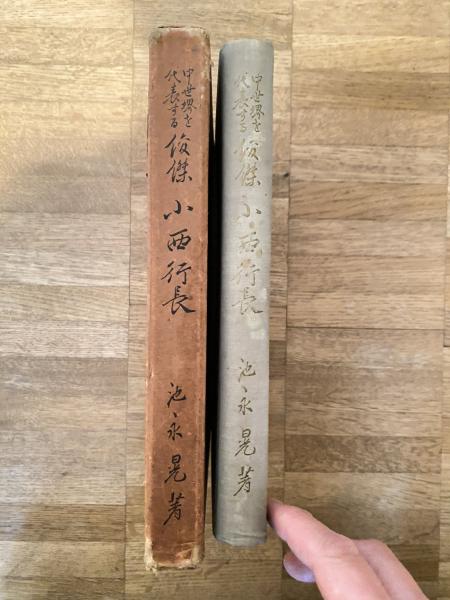 中世堺を
代表する
俊傑 小西行長
池永 晃 著
中世堺を
代表する
俊傑 小西行長
池永 晃 著